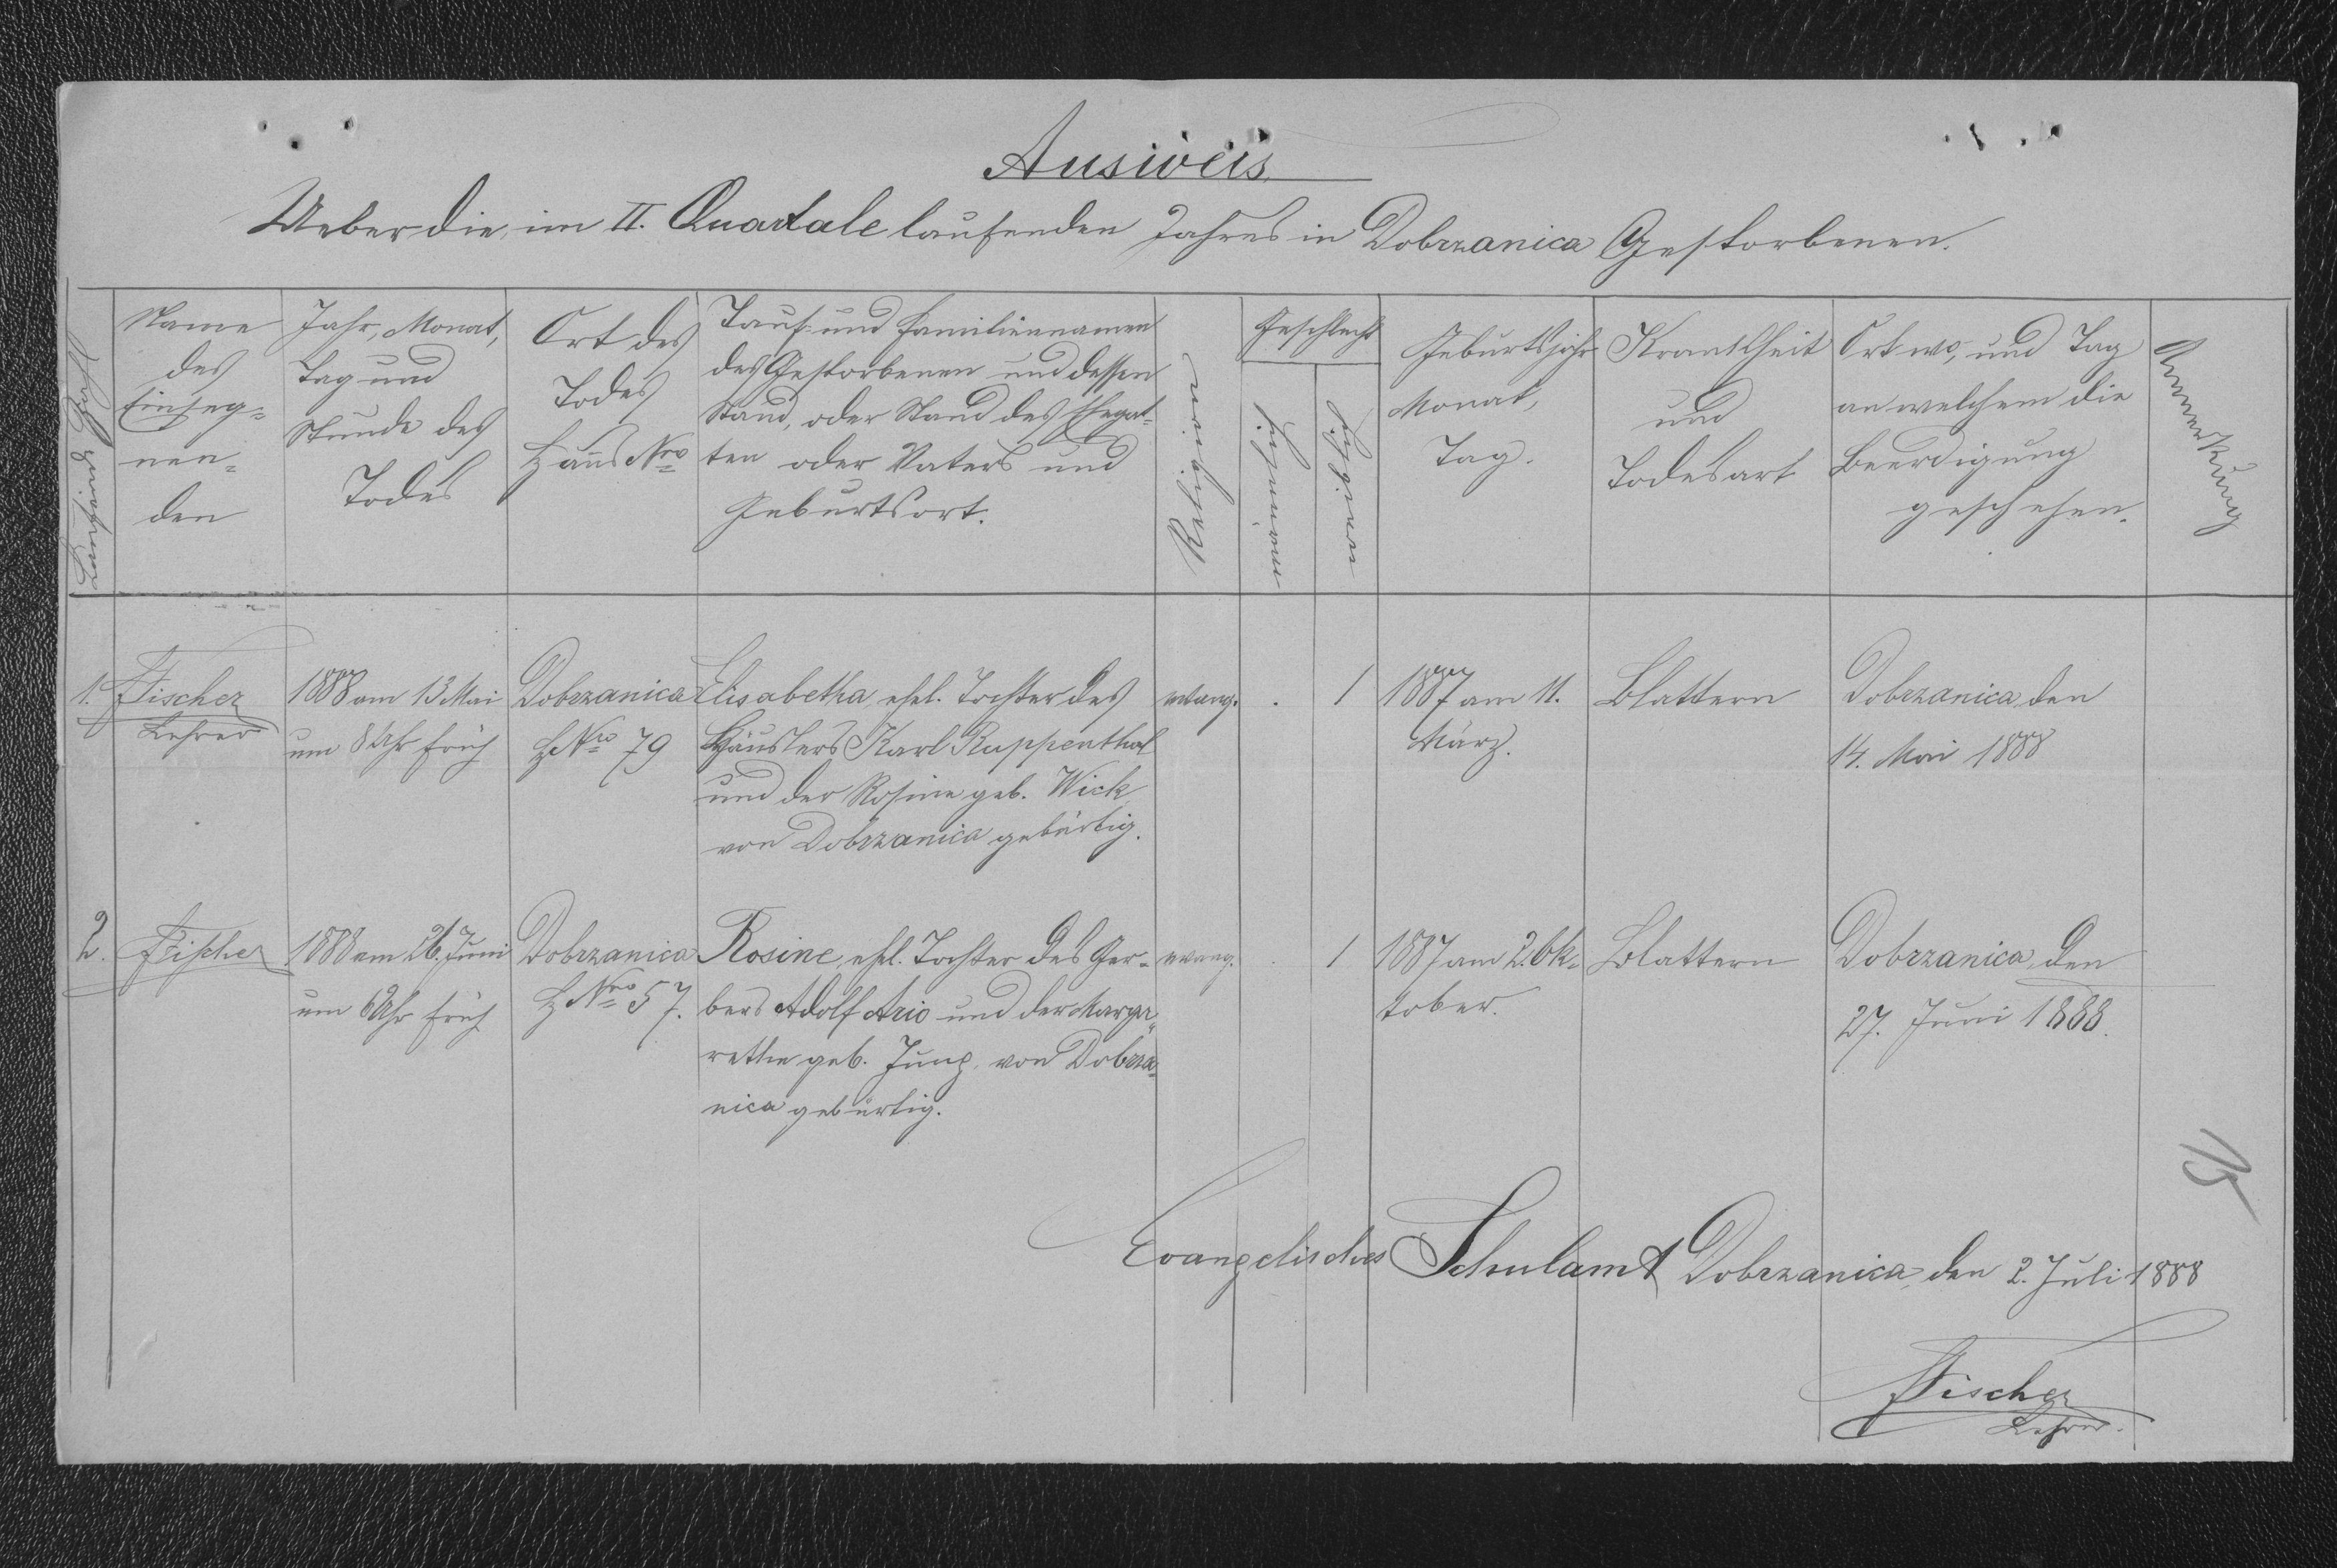 Ausweis
Ueber die im II. Quartale laufenden Jahres in Dobrzanica Gestorbenen.
Laufende Zahl
Name
des
Einseg=
nen=
den
Jahr, Monat,
Tag und
Stunde des
Todes
Ort des
Todes
Haus Nro
Tauf- und Familiennamen
des Gestorbenen und dessen
Stand, oder Stand des Ehegat=
ten oder Vaters und
Geburtsort.
Religion
Geschlecht
männlich
weiblich
Geburtsjahr
Monat,
Tag.
Krankheit
und
Todesart
Ort wo, und Tag
an welchem die
Beerdigung
geschehen.
Anmerkung
1.
Fischer
Lehrer
1888 am 13 Mai
um 8 Uhr früh
Dobrzanica
H Nro 79
Elisabetha, ehel. Tochter des
Häuslers Karl Ruppenthal
und der Rosine geb. Wick
von Dobrzanica gebürtig.
evang.
.
1
1887 am 11.
März.
Blattern
Dobrzanica, den
14. Mai 1888
2.
Fischer
1888 am 26. Juni
um 6 Uhr früh
Dobrzanica
H Nro 57.
Rosine, ehel. Tochter des Ger=
bers Adolf Ario und der Marga=
rethe geb. Jung, von Dobrza=
nica gebürtig.
evang.
.
1
1887 am 2. Ok=
tober.
Blattern
Dobrzanica, den
27. Juni 1888.
Evangelisches Schulamt Dobrzanica, den 2. Juli 1888
Fischer
Lehrer.